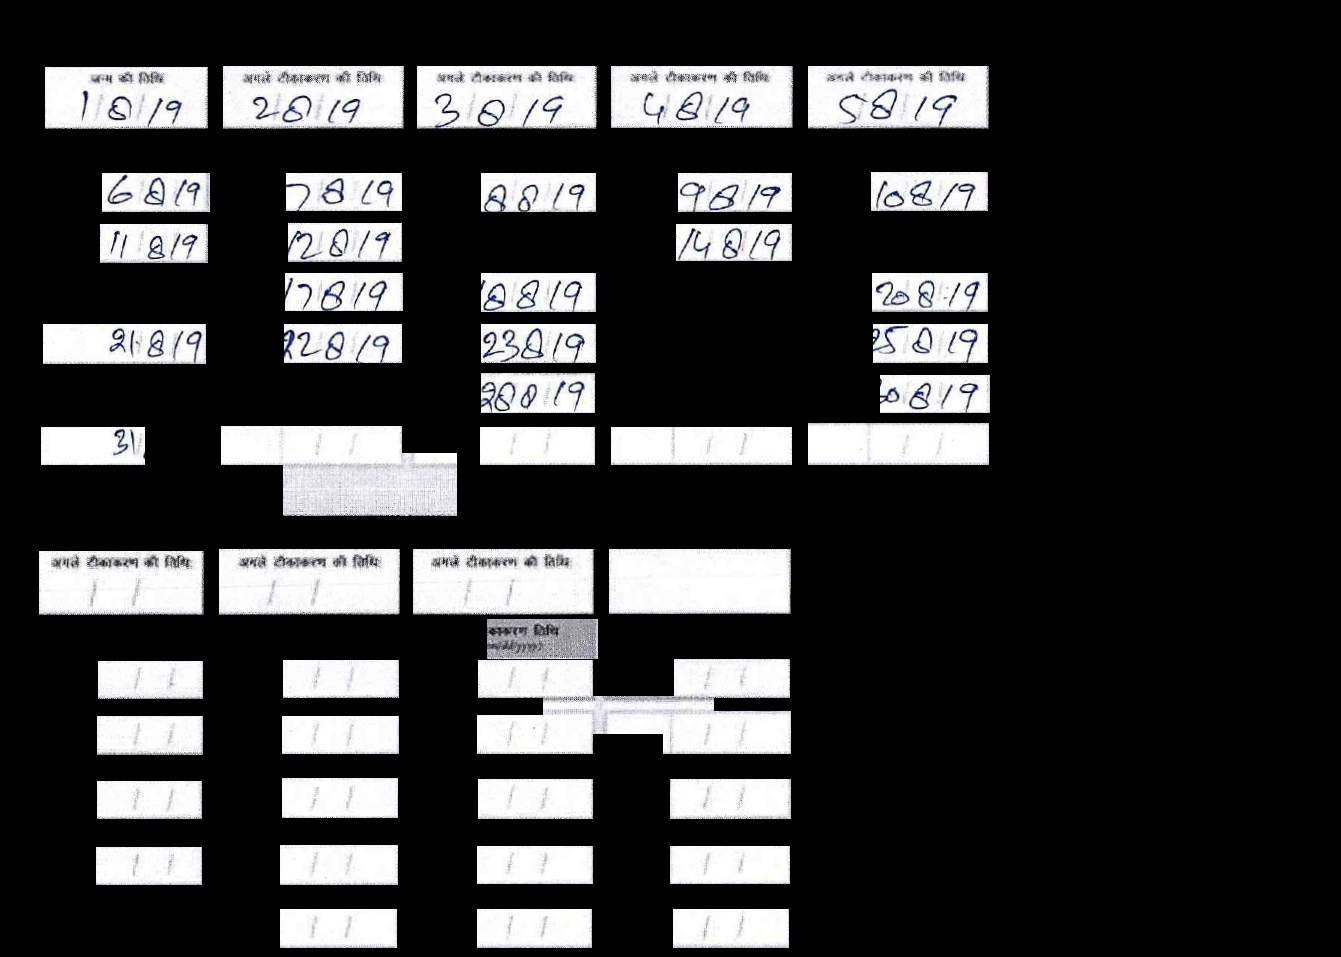 जन्म की तिथि अगले टीकाकरण की तिथि अगले टीकाकरण की तिथि अगले टीकाकरण की तिथि अगले टीकाकरण की तिथि
1/8/19 2/8/19 3/8/19 4/8/19 5/8/19
6/8/19 7/8/19 8/8/19 9/8/19 10/8/19
11/8/19 12/8/19 14/8/19
17/8/19 18/8/19 20/8/19
21/8/19 22/8/19 23/8/19 25/8/19
28/8/19 /8/19
31/ / / / / / / / /
अगले टीकाकरण की तिथि अगले टीकाकरण की तिथि अगले टीकाकरण की तिथि
/ / / / / /
काकरण तिथि
/ / / / / / / /
/ / / / / / / /
/ / / / / / / /
/ / / / / / / /
/ / / / / /